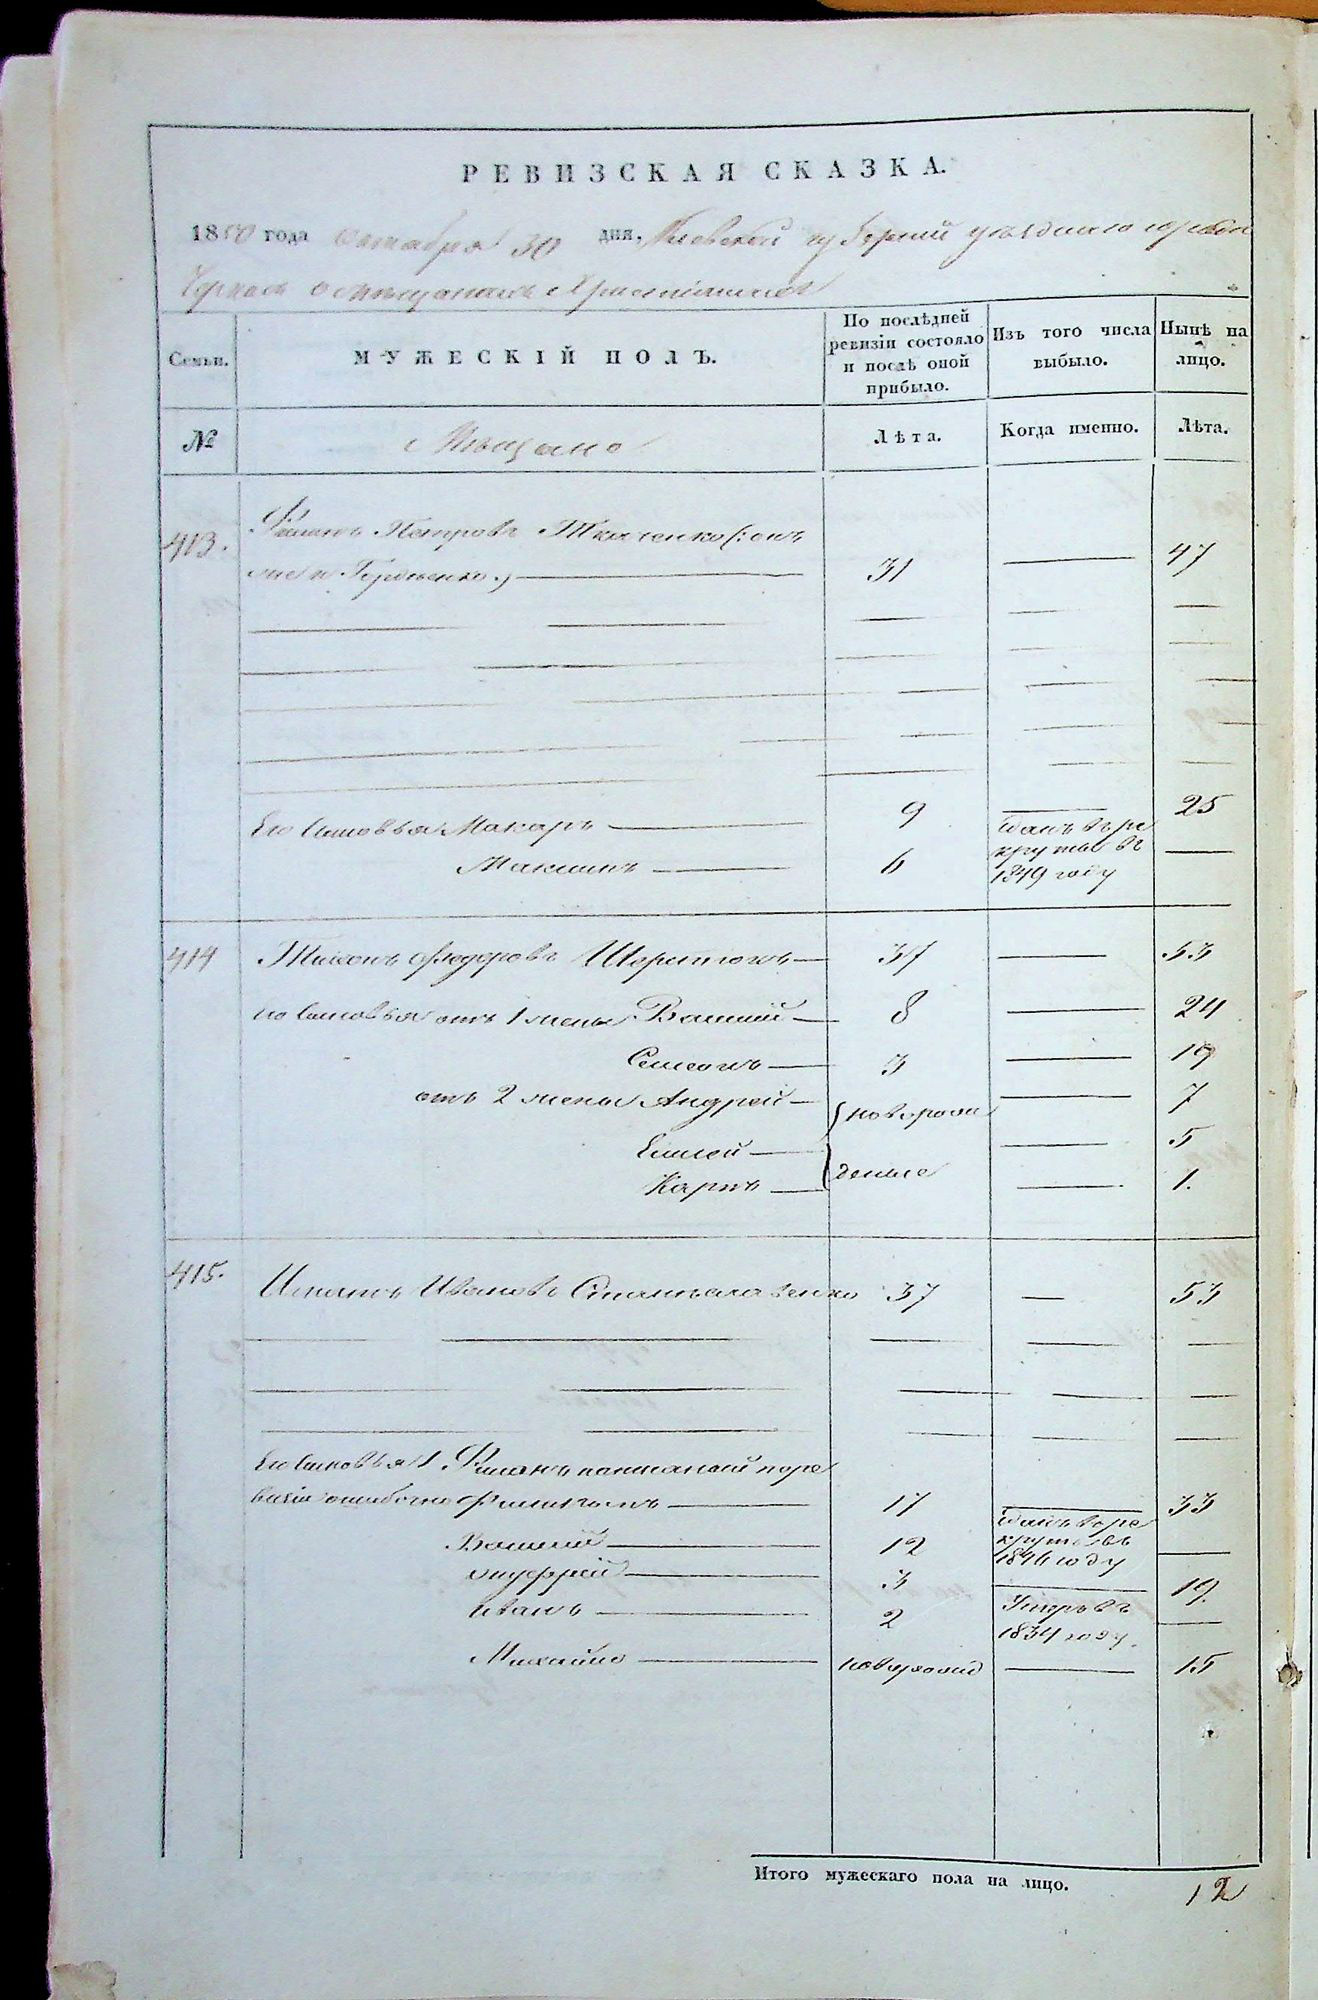 РЕВИЗСКАЯ СКАЗКА.
1850 года октября 30 дня, Кіевской губерніи уѣзднаго города
Черкасъ о мѣщанахъ Христіанахъ
Семьи. МУЖЕСКІЙ ПОЛЪ. По послѣдней ревизіи состояло и послѣ оной прибыло. Изъ того числа выбыло. Нынѣ на лицо.
№ Мѣщане Лѣта. Когда именно. Лѣта.
413. Романъ Петровъ Ткаченко (: онъ
же и :) 31 47
Его сыновья Макаръ 9 25
Максимъ 6 зданъ въ рекруты въ 1849 году
414 Тихонъ Федоровъ 37 53
Его сыновья отъ 1 жены Василій 8 24
Семенъ 3 19
отъ 2 жены Андрей новорож 7
Елисей 5
денные
Карпъ 1.
415. Иванъ Ивановъ 37 53
Его сыновья 1. Романъ показаный по ре
визіи ошибочно 17 33
Василій 12 зданъ въ рекруты въ 1846 году
Андрей 3 19.
Иванъ 2 Умеръ въ 1834 году.
Михайло новорожд 15
Итого мужескаго пола на лицо. 12